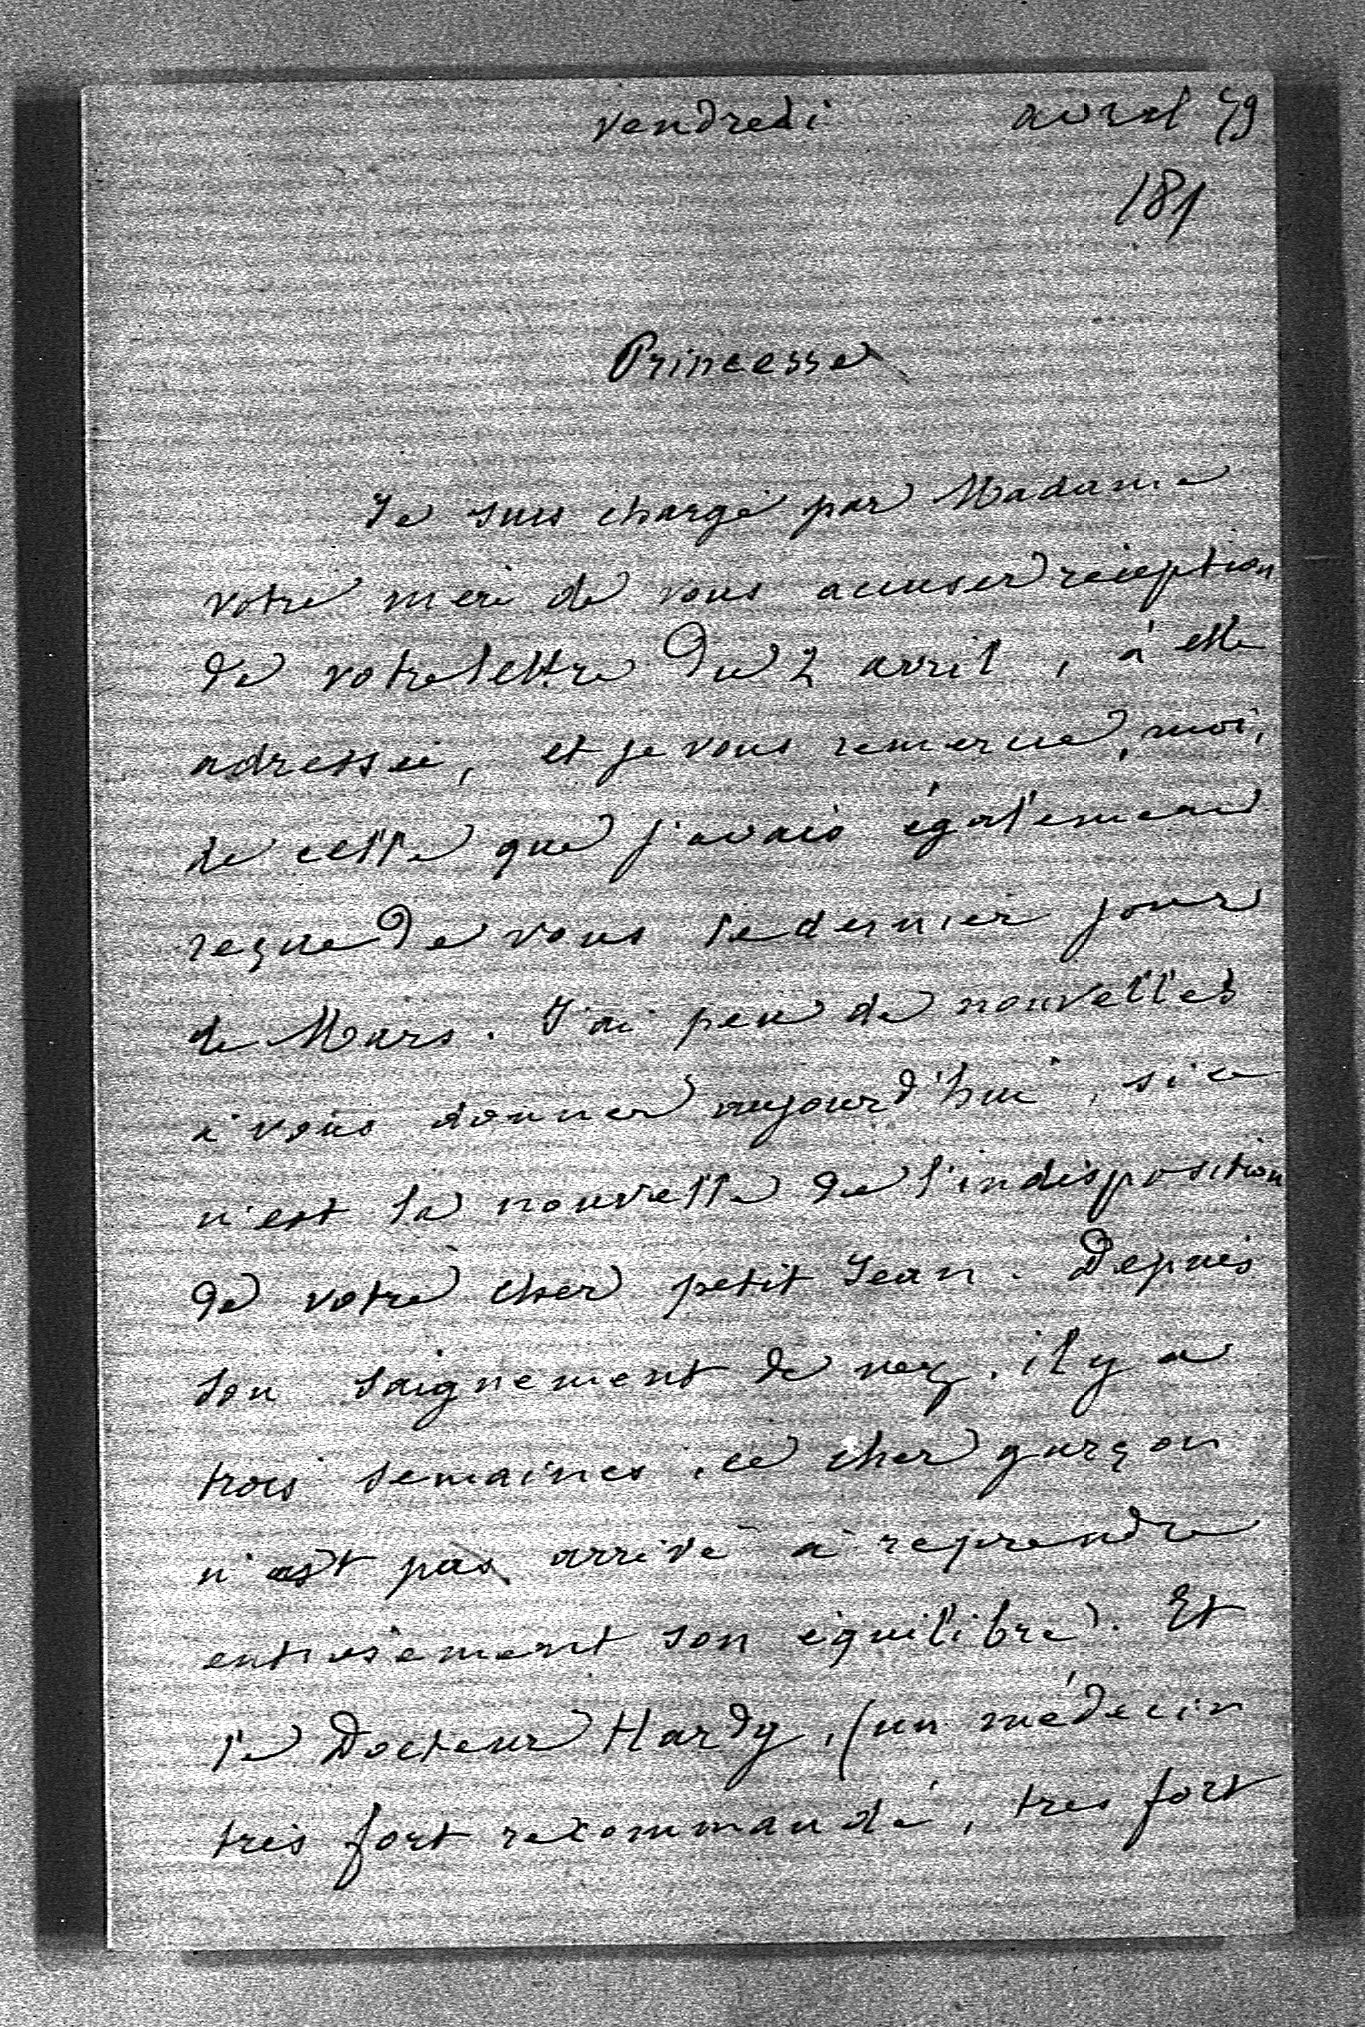 vendredi avril 79
181
Princesse
Je suis chargé par Madame
votre mère de vous accuser réception
de votre lettre du 2 avril, à elle
adressée, et je vous remercie, moi,
de celle que j'avais également
reçue de vous le dernier jour
de Mars. J'ai peu de nouvelles
à vous donner aujourd'hui, si ce
n'est la nouvelle de l'indisposition
de votre cher petit Jean. Depuis
son saignement de nez, il y a
trois semaines, ce cher garçon
n'est pas arrivé à reprendre
entièrement son équilibre. Et
le Docteur Hardy, (un médecin
très fort recommandé, très fort